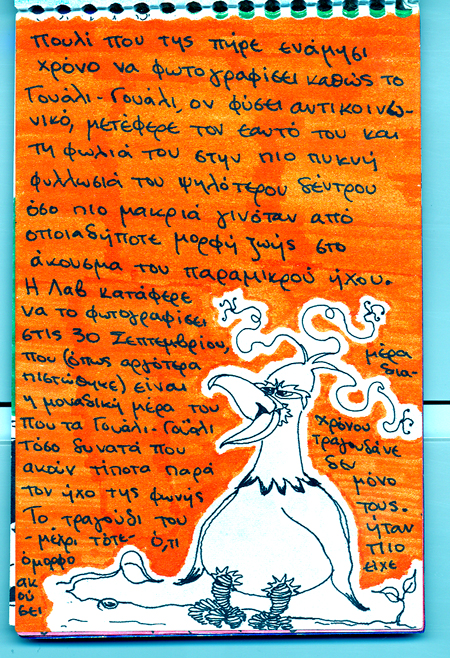 πουλί που της πήρε ενάμησι
χρόνο να φωτογραφίσει καθώς το
Γουάλι-Γουάλι, ον φύσει αντικοινω-
νικό, μετέφερε τον εαυτό του και
τη φωλιά του στην πιο πυκνή
φυλλωσιά του ψηλότερου δέντρου
όσο πιο μακριά γινόταν από
οποιαδήποτε μορφή ζωής στο
άκουσμα του παραμικρού ήχου.
Η Λαβ κατάφερε
να το φωτογραφίσει
στις 30 Σεπτεμβρίου, μέρα
που (όπως αργότερα δια-
πιστώθηκε) είναι
η μοναδική μέρα του χρόνου
που τα Γουάλι-Γουάλι τραγουδάνε
τόσο δυνατά που δεν
ακούν τίποτα παρά μόνο
τον ήχο της φωνής τους.
Το τραγούδι του ήταν
-μέχρι τότε- ό,τι πιο
όμορφο είχε
ακ
ού
σει